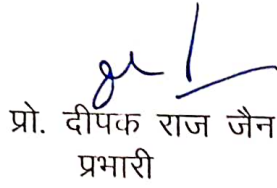 प्रो. दीपक राज जैन
प्रभारी